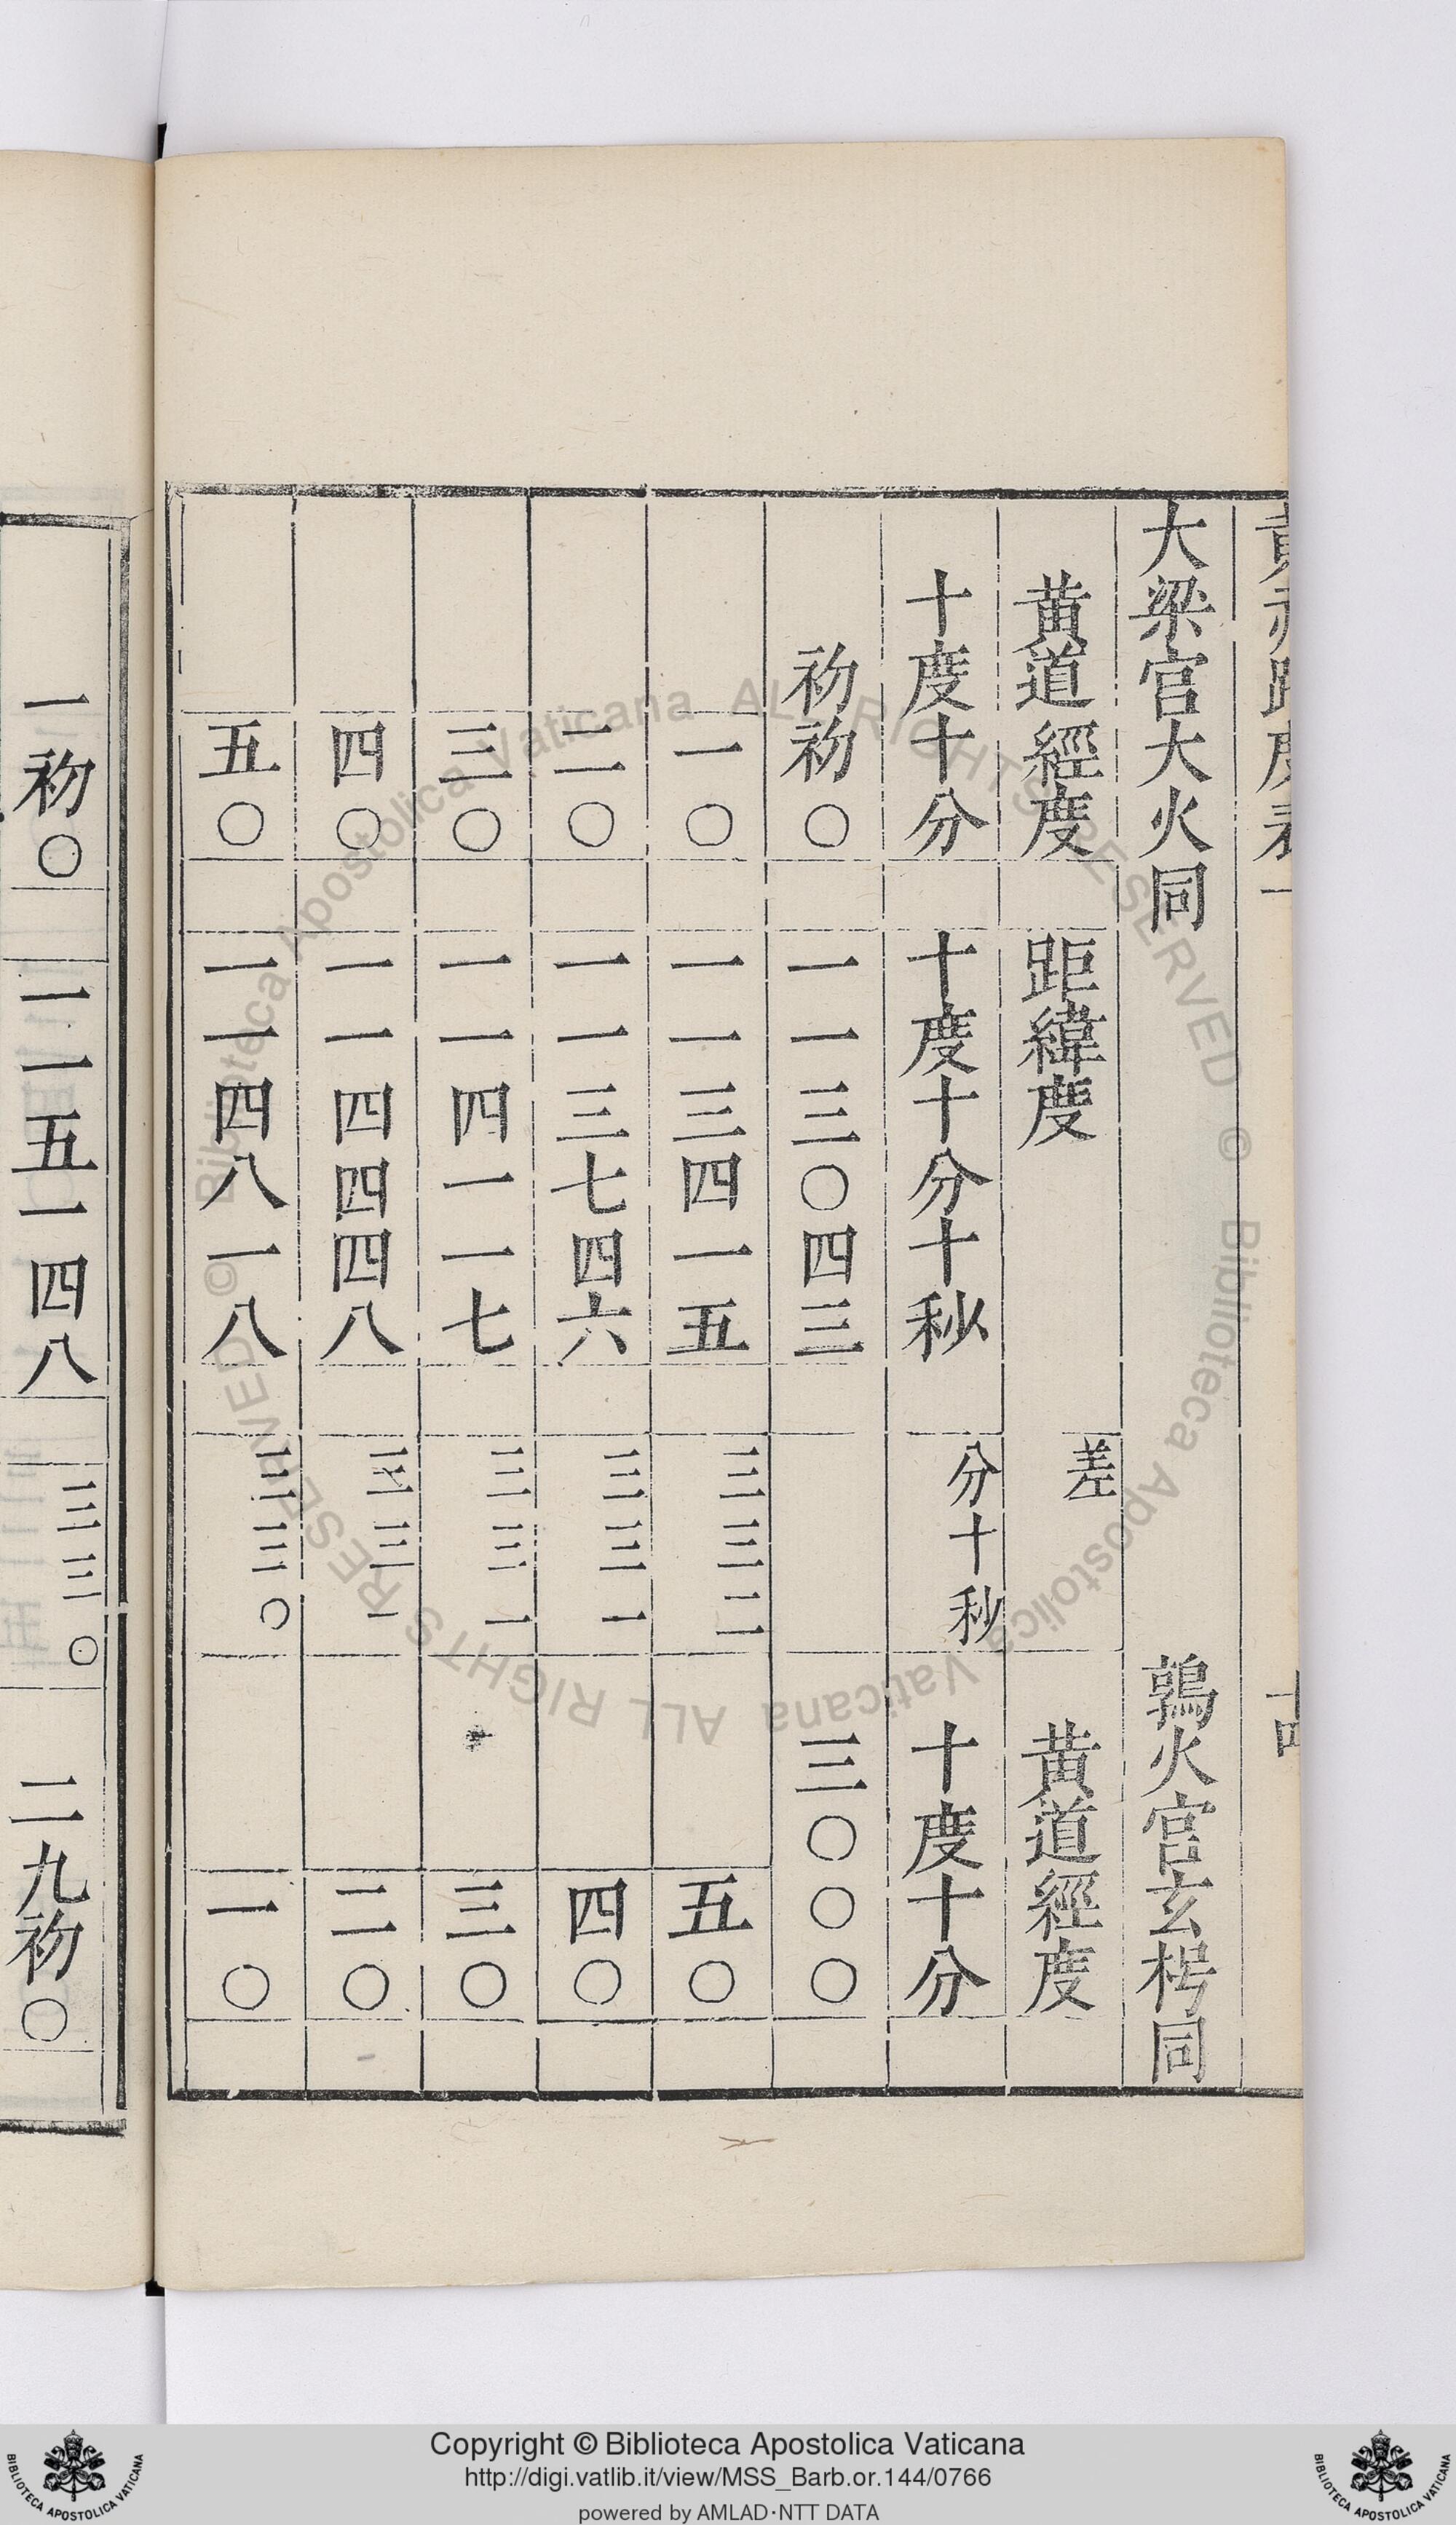 黄赤距度表一
大梁官大火同 鶉火官玄枵同
黄道經度 距緯度 差 黄道經度
十度十分 十度十分十秒 分十秒 十度十分
初初〇 一一三〇四三 三〇〇〇
一〇 一一三四一五 三三二 五〇
二〇 一一三七四六 三三一 四〇
三〇 一一四一一七 三三一 三〇
四〇 一一四四四八 三三一 二〇
五〇 一一四八一八 三三〇 一〇
一初〇 一一五一四八 三三〇 二九初〇
© Biblioteca Apostolica Vaticana ALL RIGHTS RESERVED © Biblioteca Apostolica Vaticana ALL RIGHTS RESERVED
Copyright © Biblioteca Apostolica Vaticana
http://digi.vatlib.it/view/MSS_Barb.or.144/0766
powered by AMLAD·NTT DATA
BIBLIOTECA APOSTOLICA VATICANA
BIBLIOTECA APOSTOLICA VATICANA